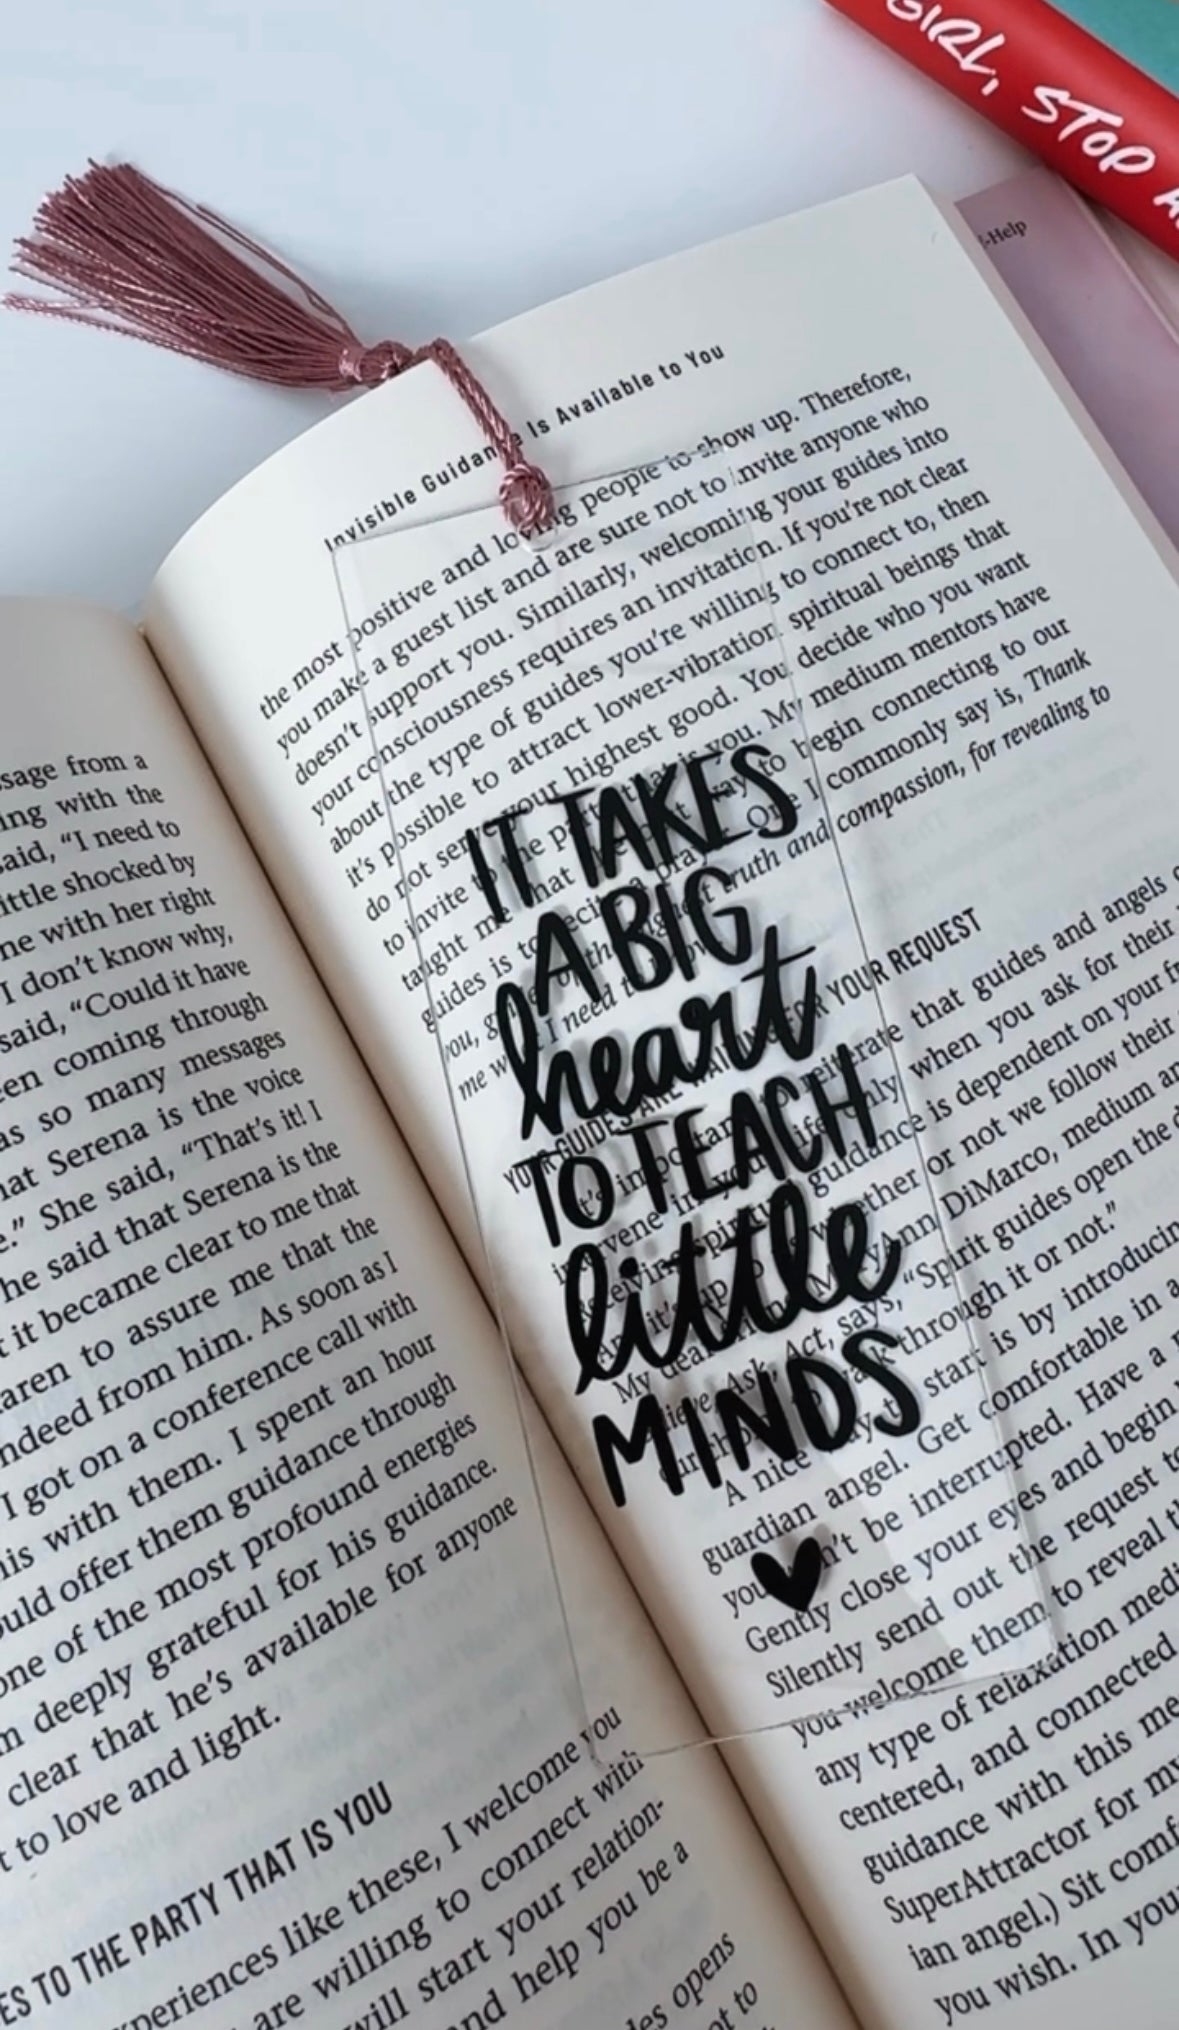 GIRL, STOP
-Help
Invisible Guidance Is Available to You
the most positive and loving people to show up. Therefore,
you make a guest list and are sure not to invite anyone who
doesn't support you. Similarly, welcoming your guides into
your consciousness requires an invitation. If you're not clear
about the type of guides you're willing to connect to, then
it's possible to attract lower-vibration spiritual beings that
do not serve your highest good. You decide who you want
to invite to the party that is you. My medium mentors have
taught me that the way to begin connecting to our
guides is to recite a prayer. One I commonly say is, Thank
you, of the highest truth and compassion, for revealing to
me I need to
YOUR GUIDES ARE WAITING FOR YOUR REQUEST
It's important to reiterate that guides and angels
intervene in your life only when you ask for their
Receiving spiritual guidance is dependent on your
And it's up to whether or not we follow their
My dear MaryAnn DiMarco, medium
Ask, Act, says, "Spirit guides open the
through it or not."
A nice way to start is by introducing
guardian angel. Get comfortable in a
you won't be interrupted. Have a
Gently close your eyes and begin
Silently send out the request to
you welcome them to reveal
any type of relaxation
centered, and connected
guidance with this
SuperAttractor for my
ian angel.) Sit
you wish. In your
IT TAKES
A BIG
heart
TO TEACH
little
MINDS
from a
ing with the
said, "I need to
little shocked by
with her right
I don't know why,
said, "Could it have
coming through
as so many messages
that Serena is the voice
She said, "That's it! I
he said that Serena is the
it became clear to me that
to assure me that the
indeed from him. As soon as I
I got on a conference call with
his with them. I spent an hour
would offer them guidance through
one of the most profound energies
deeply grateful for his guidance.
clear that he's available for anyone
to love and light.
TO THE PARTY THAT IS YOU
experiences like these, I welcome you
are willing to connect with
will start your relation-
and help you be a
opens
to